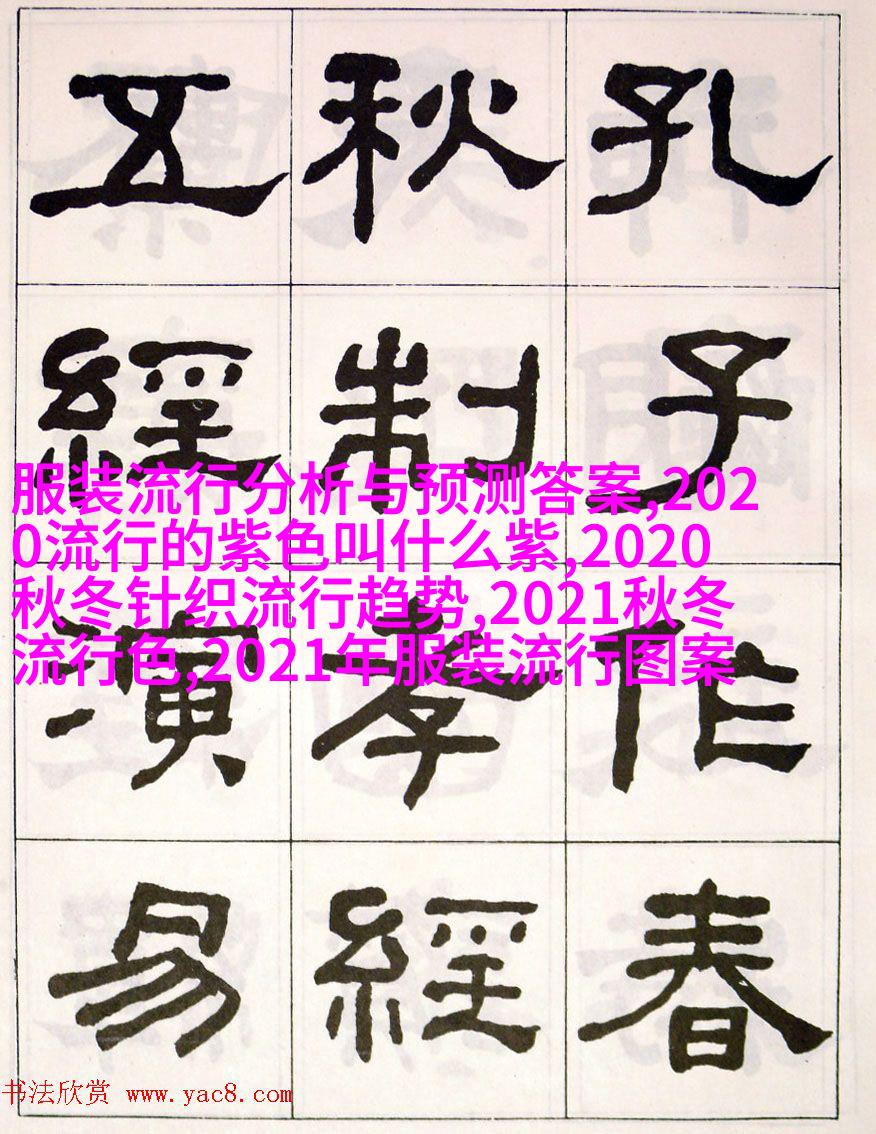 孔子作春
秋制孝經
五經演易
服装流行分析与预测答案,202
0流行的紫色叫什么紫,2020
秋冬针织流行趋势,2021秋冬
流行色,2021年服装流行图案
书法欣赏 www.yac8.com